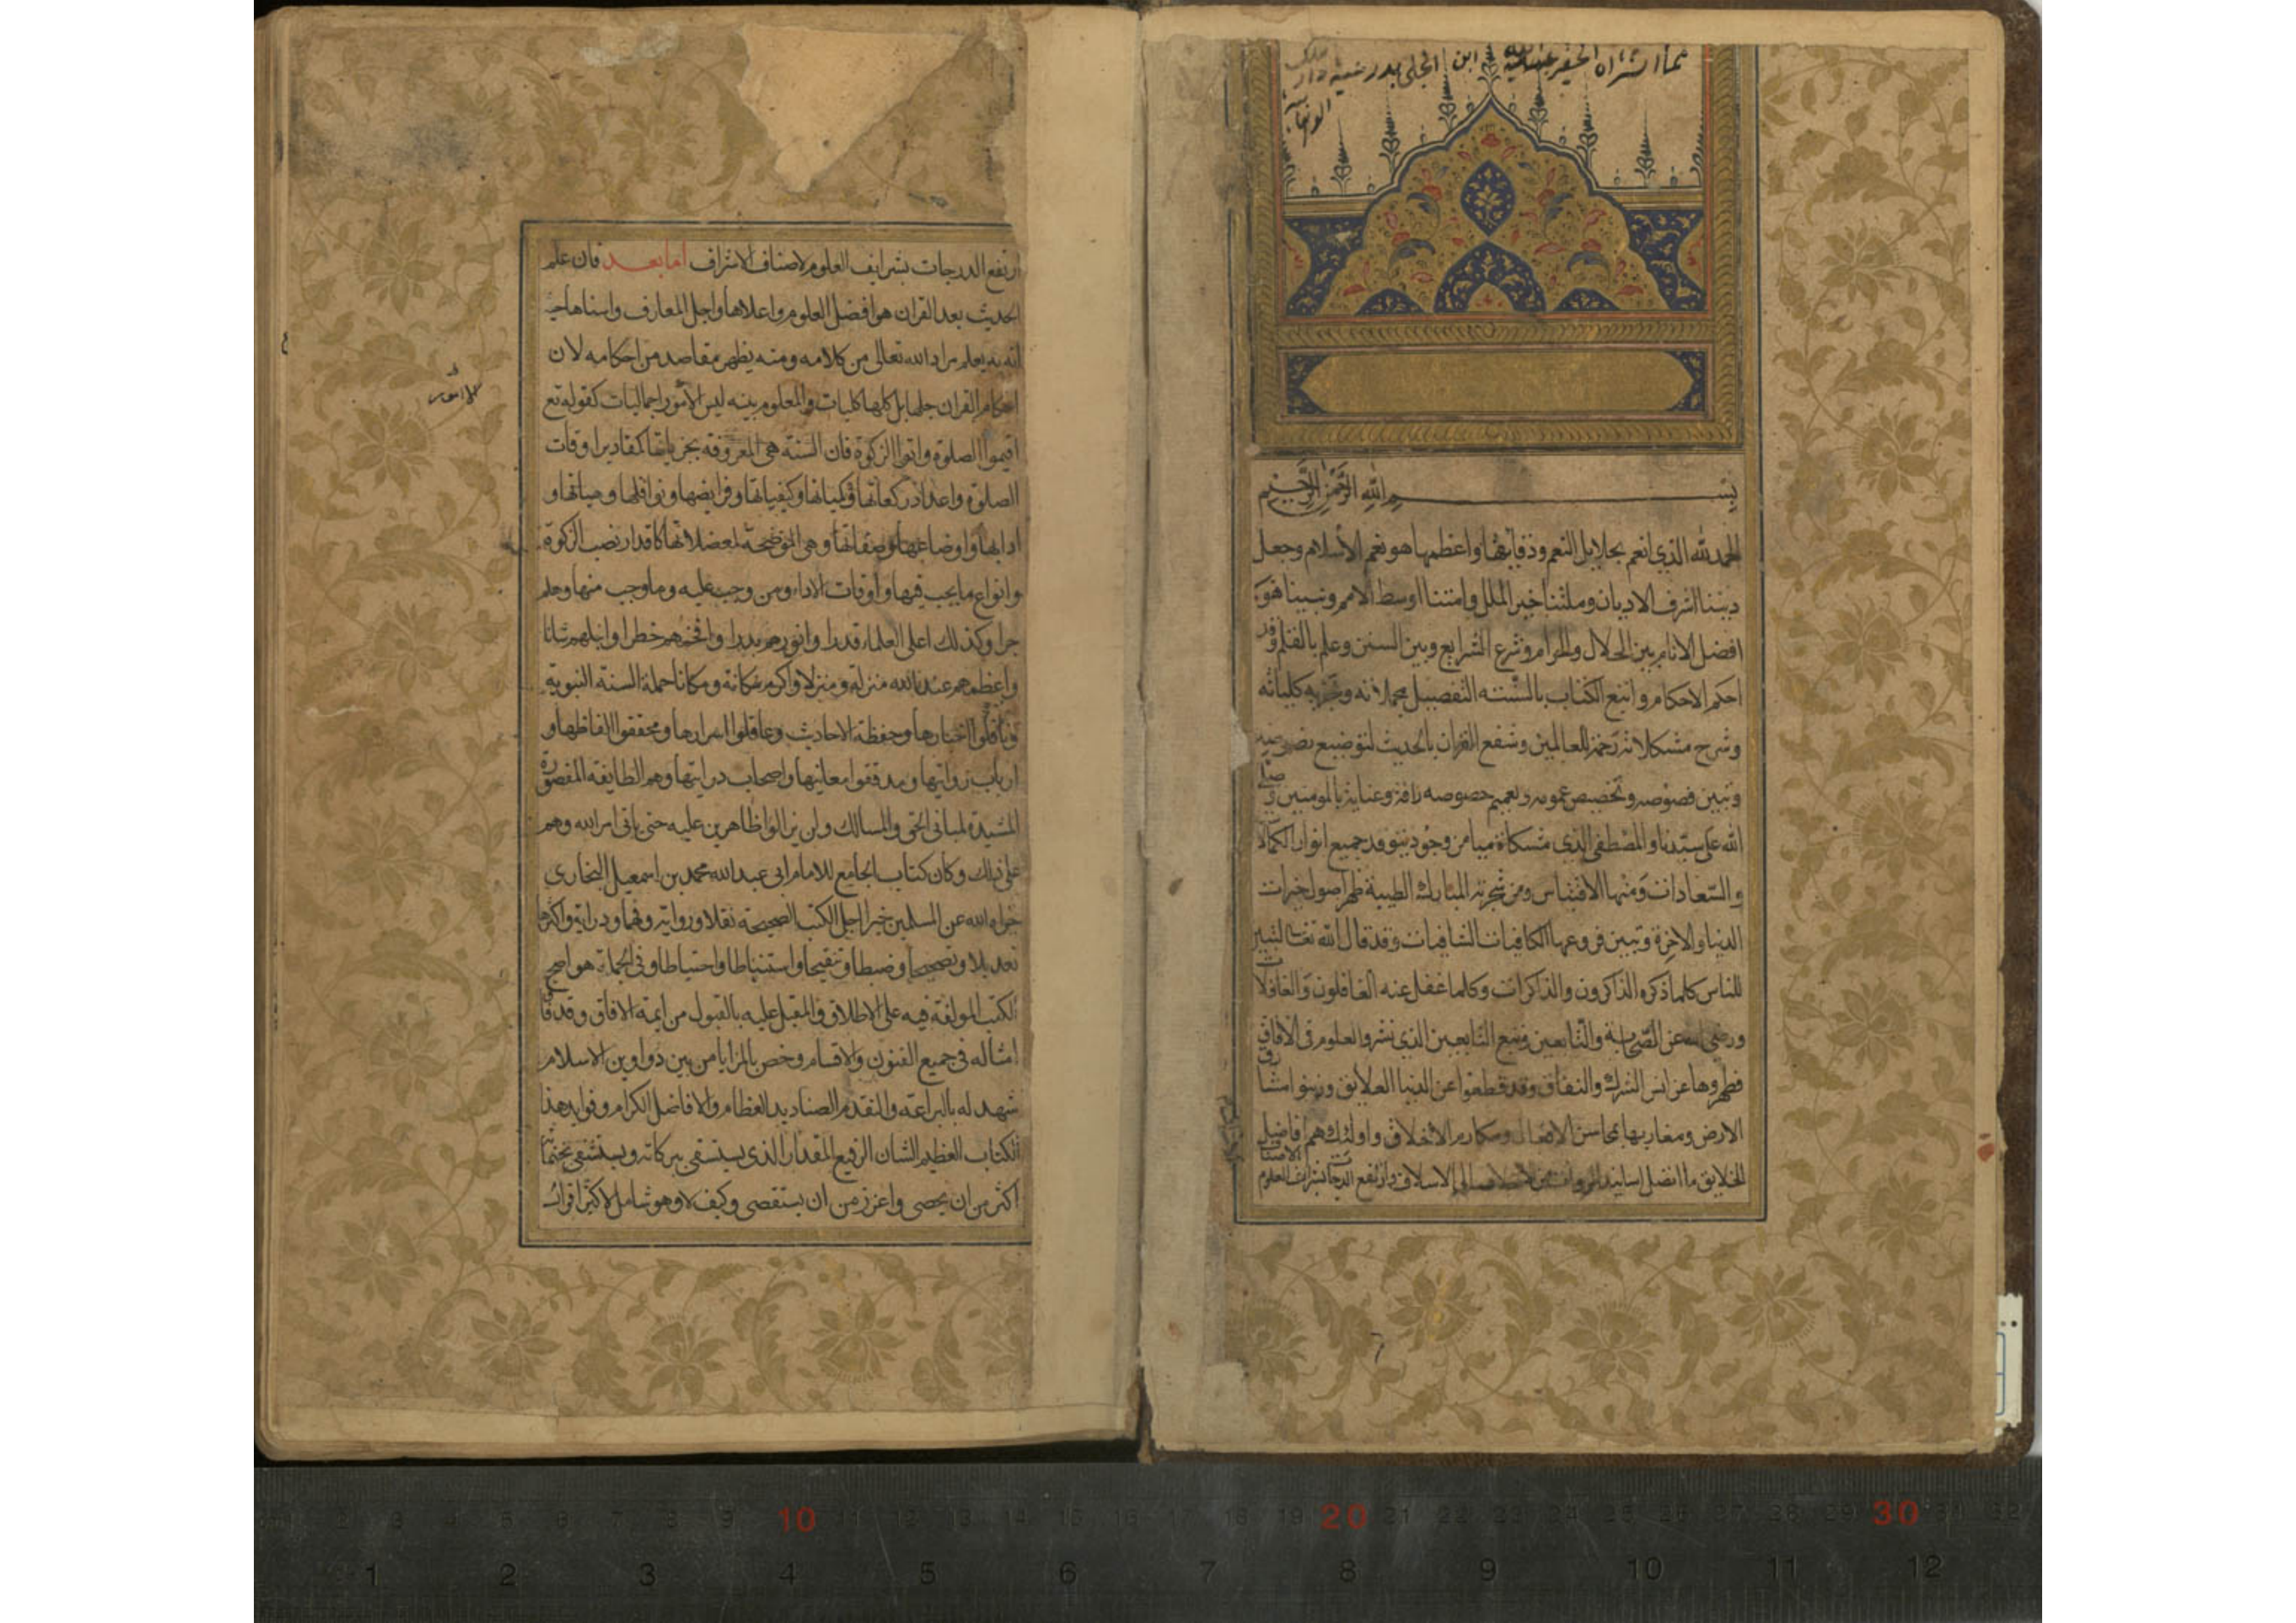 مما اشتراه الحقير عبد الله ابن
بســـم الله الرحمن الرحيم
الحمد لله الذي انعم بجلايل النعم ودقايقها واعظمها هو نعم الأسلام وجعل
ديننا اشرف الاديان وملتنا خير الملل وامتنا اوسط الامم ونبينا هو
افضل الانام بين الحلال والحرام وشرع الشرايع وبين السنن وعلم بالقلم وقد
احكم الاحكام واتبع الكتاب بالسنته التفصيل مجملاته وتجزيه كلياته
وشرح مشكلاته رحمة للعالمين وشفع القران بالحديث لتوضيح
وتبيين فصوصه وتخصيص عمومه وتعميم خصوصه رافة وعناية بالمومنين وصلى
الله على سيدنا والمصطفى الذي مشكاة ميامن وجوده يتوقد جميع انوار الكمالا
والسعادات ومنها الاقتباس ومن شجرته المباركة الطيبة ظهر اصول خيرات
الدنيا والاخرة وتبين فروعها الكافيات الشافيات وقد قال الله تعالى لتبين
للناس كلما ذكره الذاكرون والذاكرات وكلما غفل عنه الغافلون والغافلات
ورضى الله عن الصحابة والتابعين وتبع التابعين الذي نشروا العلوم في الافاق
فطهروها عن انس الشرك والنفاق وقد قطعوا عن الدنيا العلايق وزينوا مشارق
الارض ومغاربها بمحاسن الافعال ومكارم الاخلاق واولئك هم افاضل
الخلايق ما اتصل اسانيد الى الاسلاف وارتفع الدرجات بشرائف العلوم لاصناف
ارتفع الدرجات بشرايف العلوم لاصناف الاشراف اما بعد فان علم
الحديث بعد القران هو افضل العلوم واعلاها واجل المعارف واسناها حيث
انه به يعلم مراد الله تعالى من كلامه ومنه يظهر مقاصد من احكامه لان
احكام القران جلها بل كلها كليات والمعلوم بينه ليس الا امور اجماليات كقوله تع
اقيموا الصلوة واتوا الزكوة فان السنة هي المعروفة بجزياتها كمقادير اوقات
الصلوة واعداد ركعاتها وكمياتها وكيفياتها وفرايضها ونوافلها وهياتها و
ادابها واوضاعها وصفاتها وهي الموضحة لمعضلاتها كاقدار نصب الزكوة
وانواع ما يجب فيها واوقات الاداء ومن وجب عليه وما وجب منها وهلم
جرا وكذلك اعلى العلماء قدرا وانورهم بدرا وافخمهم خطرا وانبلهم شانا
واعظمهم عند الله منزلة ومنزلا واكرم مكانة ومكانا حملة السنة النبوية
وناقلوا اخبارها وحفظة الاحاديث وعاقلوا اسرارها ومحققوا الفاظها و
ارباب روايتها ومدققوا معانيها واصحاب درايتها وهم الطايفة المنصورة
المشيدة لمباني الحق والمسالك ولن يزالوا ظاهرين عليه حتى ياتى امر الله وهم
على ذلك وكان كتاب الجامع للامام ابى عبد الله محمد بن اسمعيل البخاري
جزاه الله عن المسلمين خيرا اجل الكتب الصحيحة نقلا ورواية وفهما ودراية واكثرها
تعديلا وتصحيحا وضبطا وتنقيحا واستنباطا واحتياطا وفى الجملة هو اصح
الكتب المولفة فيه على الاطلاق والمقبل عليه بالقبول من ايمة الافاق وقد فاق
امثاله في جميع الفنون والاقسام وخص بالمزايا من بين دواوين الاسلام
شهد له بالبراعة والتقدم الصناديد العظام والافاضل الكرام وفوايد هذا
الكتاب العظيم الشان الرفيع المقدار الذى يستسقى ببركاته ويستشفى بختماته
اكثر من ان يحصى واعزز من ان يستقصى وكيف لا وهو شامل لاكثر اقوال